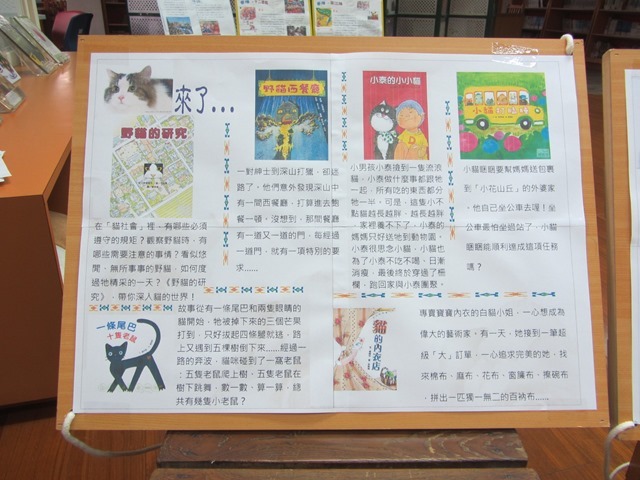 來了...
野貓的研究
在「貓社會」裡，有哪些必須
遵守的規矩？觀察野貓時，有
哪些需要注意的事情？看似悠
閒、無所事事的野貓，如何度
過牠精采的一天？《野貓的研
究》，帶你深入貓的世界！
野貓西餐廳
一對紳士到深山打獵，卻迷
路了，他們意外發現深山中
有一間西餐廳，打算進去飽
餐一頓，沒想到，那間餐廳
有一道又一道的門，每經過
一道門，就有一項特別的要
求......
小泰的小小貓
小男孩小泰撿到一隻流浪
貓，小泰做什麼事都跟牠
一起，所有吃的東西都分
牠一半，可是，這隻小不
點貓越長越胖，越長越胖
，家裡養不下了，小泰的
媽媽只好送牠到動物園。
小泰很思念小貓，小貓也
為了小泰不吃不喝，日漸
消瘦，最後終於穿過了柵
欄，跑回家與小泰團聚。
小貓
小貓睏睏要幫媽媽送包裹
到「小花山丘」的外婆家
，他自己坐公車去哩！坐
公車最怕坐過站了，小貓
睏睏能順利達成這項任務
嗎？
一條尾巴
十隻老鼠
故事從有一條尾巴和兩隻眼睛的
貓開始，牠被掉下來的三個芒果
打到，只好拔起四條腿就逃，路
上又遇到五棵樹倒下來......經過一
路的奔波，貓咪碰到了一窩老鼠
：五隻老鼠爬上樹，五隻老鼠在
樹下跳舞，數一數，算一算，總
共有幾隻小老鼠？
貓的內衣店
專賣寶寶內衣的白貓小姐，一心想成為
偉大的藝術家。有一天，她接到一筆超
級「大」訂單，一心追求完美的她，找
來棉布、麻布、花布、窗簾布、擦碗布
，拼出一匹獨一無二的百衲布......